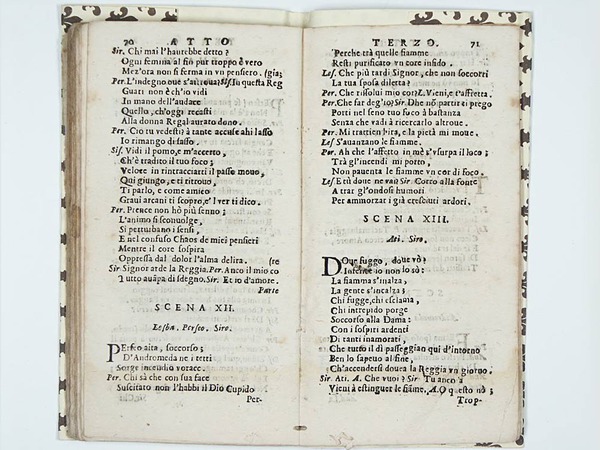 70 ATTO
Sir. Chi mai l'haurebbe detto?
Ogni femina al fin pur troppo è vero
Mez'ora non si ferma in vn pensiero. (gia;
Per. L'indegno oue s'aritroua? Sir. In questa Reg
Guari non è ch'io vidi
In mano dell'audace
Quello, ch'oggi recasti
Alla donna Real aurato dono.
Per. Ciò tu vedesti? à tante accuse ahi lasso
Io rimango di sasso.
Sir. Vidi il pomo, e m'accerto,
Ch'è tradito il tuo foco;
Veloce in rintracciarti il passo mouo,
Qui giungo, e ti ritrouo,
Ti parlo, e come amico
Graui arcani ti scopro, e'l ver ti dico.
Per. Prence non hò più senno;
L'animo si sconuolge,
Si perturbano i sensi,
E nel confuso Chaos de miei pensieri
Mentre il core sospira
Oppressa dal dolor l'alma delira. (re
Sir Signor arde la Reggia. Per. Anco il mio co
Tutto auāpa di sdegno. Sir. Et io d'amore.
Parte
SCENA XII.
Lesba. Perseo. Siro.
PErseo aita, soccorso;
D'Andromeda ne i tetti
Sorge incendio vorace.
Per. Chi sà che con sua face
Suscitato non l'habbi il Dio Cupido
Per-
TERZO. 71
Perche trà quelle fiamme
Resti purificato vn core infido.
Les. Che più tardi Signor, che non soccorri
La tua sposa diletta?
Per. Che risolui mio cor? L. Vieni, e t'affretta.
Per. Che far deg'io? Sir. Dhe nō partir ti prego
Porti nel seno tuo foco à bastanza
Senza che vadi à ricercarlo altroue.
Per. Mi trattien hira, e la pietà mi moue.
Les S'auanzano le fiamme.
Per. Ah che l'affetto in mè s'vsurpa il loco;
Trà gl'incendi mi porto,
Non pauenta le fiamme vn cor di foco.
Les E tù doue ne vai? Sir Corro alla fonte
A trar gl'ondosi humori
Per ammorzar i già cresciuti ardori.
SCENA XIII.
Ati. Siro.
DOue fuggo, doue vò?
Infelice io non lo sò:
La fiamma s'inalza,
La gente s'incalza;
Chi fugge, chi esclama,
Chi intrepido porge
Soccorso alla Dama:
Con i sospiri ardenti
Di tanti inamorati,
Che tutto il dì passeggian qui d'intorno
Ben lo sapeuo al fine,
Ch'accendersi douea la Reggia vn giorno.
Sir. Ati. A. Che vuoi? Sir Tu anco à
Vieni à estinguer le fiāme. A. O questo nò;
Trop-